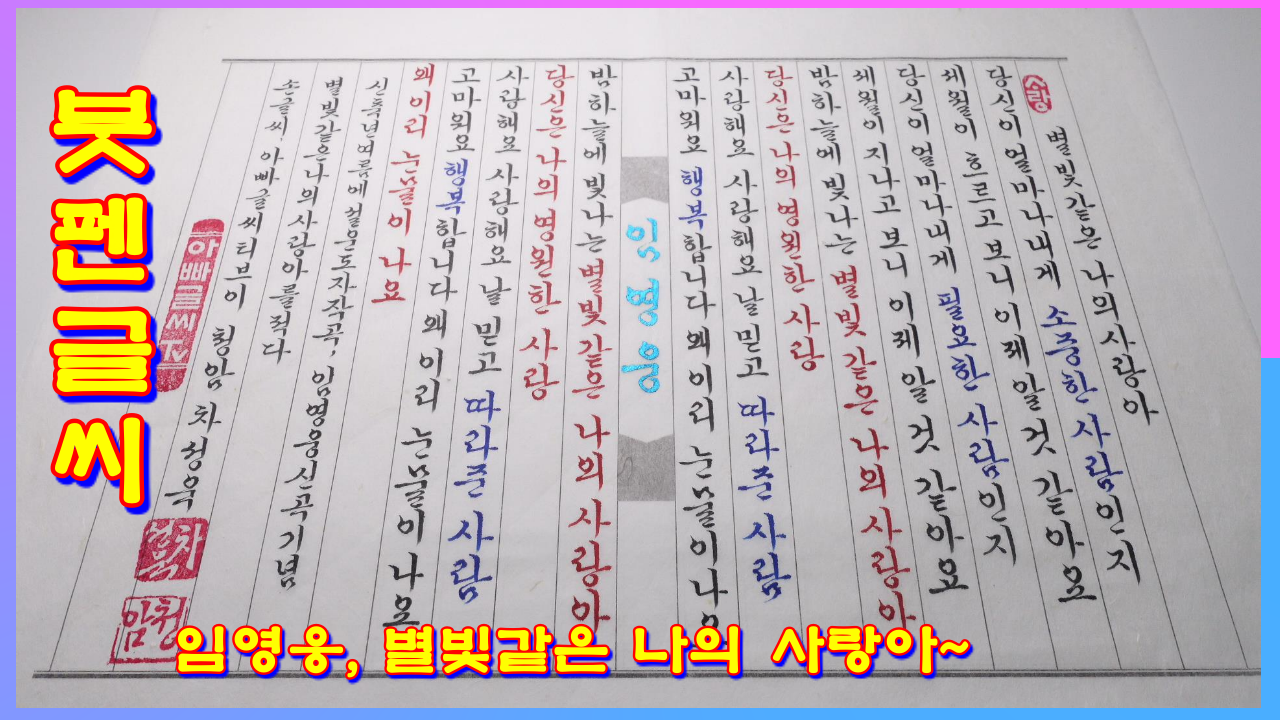 붓펜글씨
사랑
별빛같은 나의 사랑아
당신이 얼마나 내게 소중한 사람인지
세월이 흐르고 보니 이제 알 것 같아요
당신이 얼마나 내게 필요한 사람인지
세월이 지나고 보니 이제 알 것 같아요
밤하늘에 빛나는 별빛 같은 나의 사랑아
당신은 나의 영원한 사랑
사랑해요 사랑해요 날 믿고 따라준 사람
고마워요 행복합니다 왜 이리 눈물이 나요
임영웅
밤하늘에 빛나는 별빛 같은 나의 사랑아
당신은 나의 영원한 사랑
사랑해요 사랑해요 날 믿고 따라준 사람
고마워요 행복합니다 왜 이리 눈물이 나요
왜 이리 눈물이 나요
신축년 여름에 설운도 자작곡, 임영웅 신곡 기념
별빛같은 나의 사랑아를 적다
손글씨, 아빠글씨티브이 청암 차성욱
아빠글씨TV
청암
임영웅, 별빛같은 나의 사랑아~